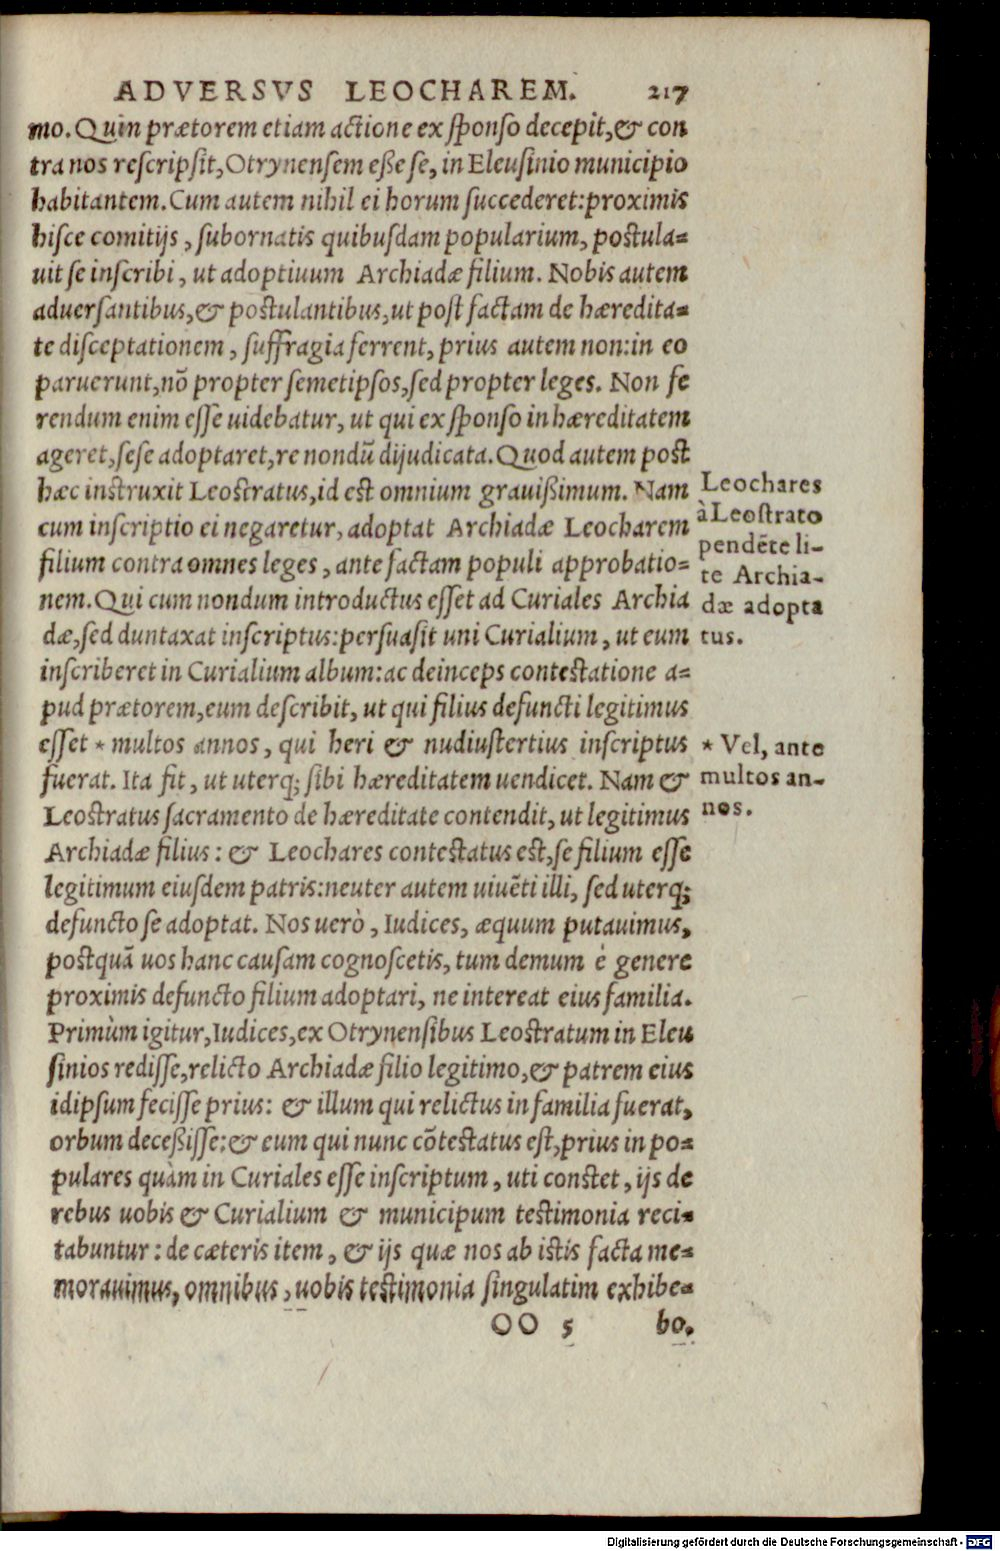 ADVERSVS LEOCHAREM. 217
mo. Quin prætorem etiam actione ex sponso decepit, & con
tra nos rescripsit, Otrynensem eße se, in Eleusinio municipio
habitantem. Cum autem nihil ei horum succederet: proximis
hisce comitijs, subornatis quibusdam popularium, postula=
uit se inscribi, ut adoptiuum Archiadæ filium. Nobis autem
aduersantibus, & postulantibus, ut post factam de hæredita=
te disceptationem, suffragia ferrent, prius autem non: in eo
paruerunt, nõ propter semetipsos, sed propter leges. Non fe
rendum enim esse uidebatur, ut qui ex sponso in hæreditatem
ageret, sese adoptaret, re nondũ dijudicata. Quod autem post
hæc instruxit Leostratus, id est omnium grauißimum. Nam
cum inscriptio ei negaretur, adoptat Archiadæ Leocharem
filium contra omnes leges, ante factam populi approbatio=
nem. Qui cum nondum introductus esset ad Curiales Archia
dæ, sed duntaxat inscriptus: persuasit uni Curialium, ut eum
inscriberet in Curialium album: ac deinceps contestatione a=
pud prætorem, eum describit, ut qui filius defuncti legitimus
esset * multos annos, qui heri & nudiustertius inscriptus
fuerat. Ita fit, ut uterq; sibi hæreditatem uendicet. Nam &
Leostratus sacramento de hæreditate contendit, ut legitimus
Archiadæ filius: & Leochares contestatus est, se filium esse
legitimum eiusdem patris: neuter autem uiuẽti illi, sed uterq;
defuncto se adoptat. Nos uerò, Iudices, æquum putauimus,
postquã uos hanc causam cognoscetis, tum demum è genere
proximis defuncto filium adoptari, ne intereat eius familia.
Primùm igitur, Iudices, ex Otrynensibus Leostratum in Eleu
sinios redisse, relicto Archiadæ filio legitimo, & patrem eius
idipsum fecisse prius: & illum qui relictus in familia fuerat,
orbum deceßisse: & eum qui nunc cõtestatus est, prius in po=
pulares quàm in Curiales esse inscriptum, uti constet, ijs de
rebus uobis & Curialium & municipum testimonia reci=
tabuntur: de cæteris item, & ijs quæ nos ab istis facta me=
morauimus, omnibus, uobis testimonia singulatim exhibe=
OO 5 bo.
Leochares
à Leostrato
pendẽte li-
te Archia-
dæ adopta
tus.
* Vel, ante
multos an-
nos.
Digitalisierung gefördert durch die Deutsche Forschungsgemeinschaft - DFG